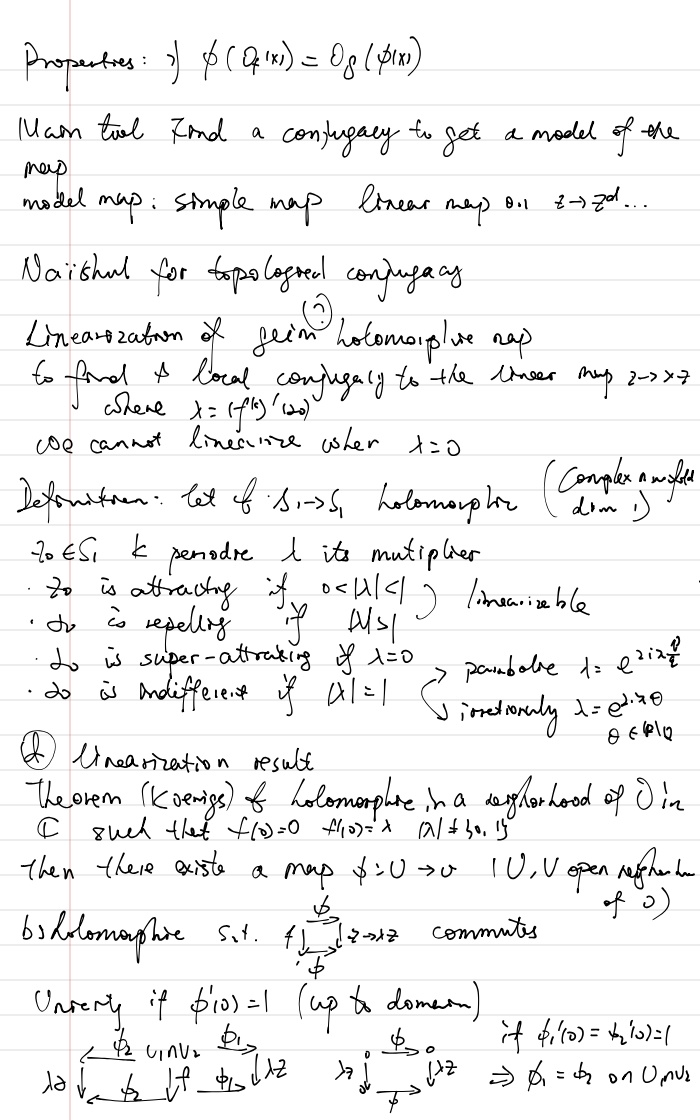 Properties: 1) φ(O_f(x)) = O_g(φ(x))
Main tool Find a conjugacy to get a model of the
map
model map: simple map linear map or z → z^d ...
Naïshul for topological conjugacy
(?)
Linearization of germ holomorphic map
to find a local conjugacy to the linear map z → λz
where λ = (f^k)'(z0)
we cannot linearize when λ = 0
Definition: let f: S1 → S1 holomorphic (Complex manifold
dim 1)
z0 ∈ S1 k periodic λ its mutiplier
· z0 is attracting if 0 < |λ| < 1
· z0 is repelling if |λ| > 1 } linearizeble
· z0 is super-attrating if λ = 0 → parabolic λ = e^{2iπ p/q}
· z0 is indifferent if |λ| = 1 ↘ irrationnly λ = e^{2iπθ}
θ ∈ R\Q
linearization result
Theorem (Koenigs) f holomorphic in a neighorhood of 0 in
C such that f(0)=0 f'(0)=λ |λ| ∉ {0, 1}
Then there exists a map φ: U → V (U, V open
of 0)
biholomorphic s.t. f ↓ φ → ↓ z→λz commutes
φ
if φ'(0) = 1 (up to domain)
φ2 U1∩U2 φ1 φ if φ1'(0) = φ2'(0) = 1
λz ↓ φ2 ↓ f φ1 ↓ λz λz ↓ φ ↓ λz ⇒ φ1 = φ2 on U1∩U2